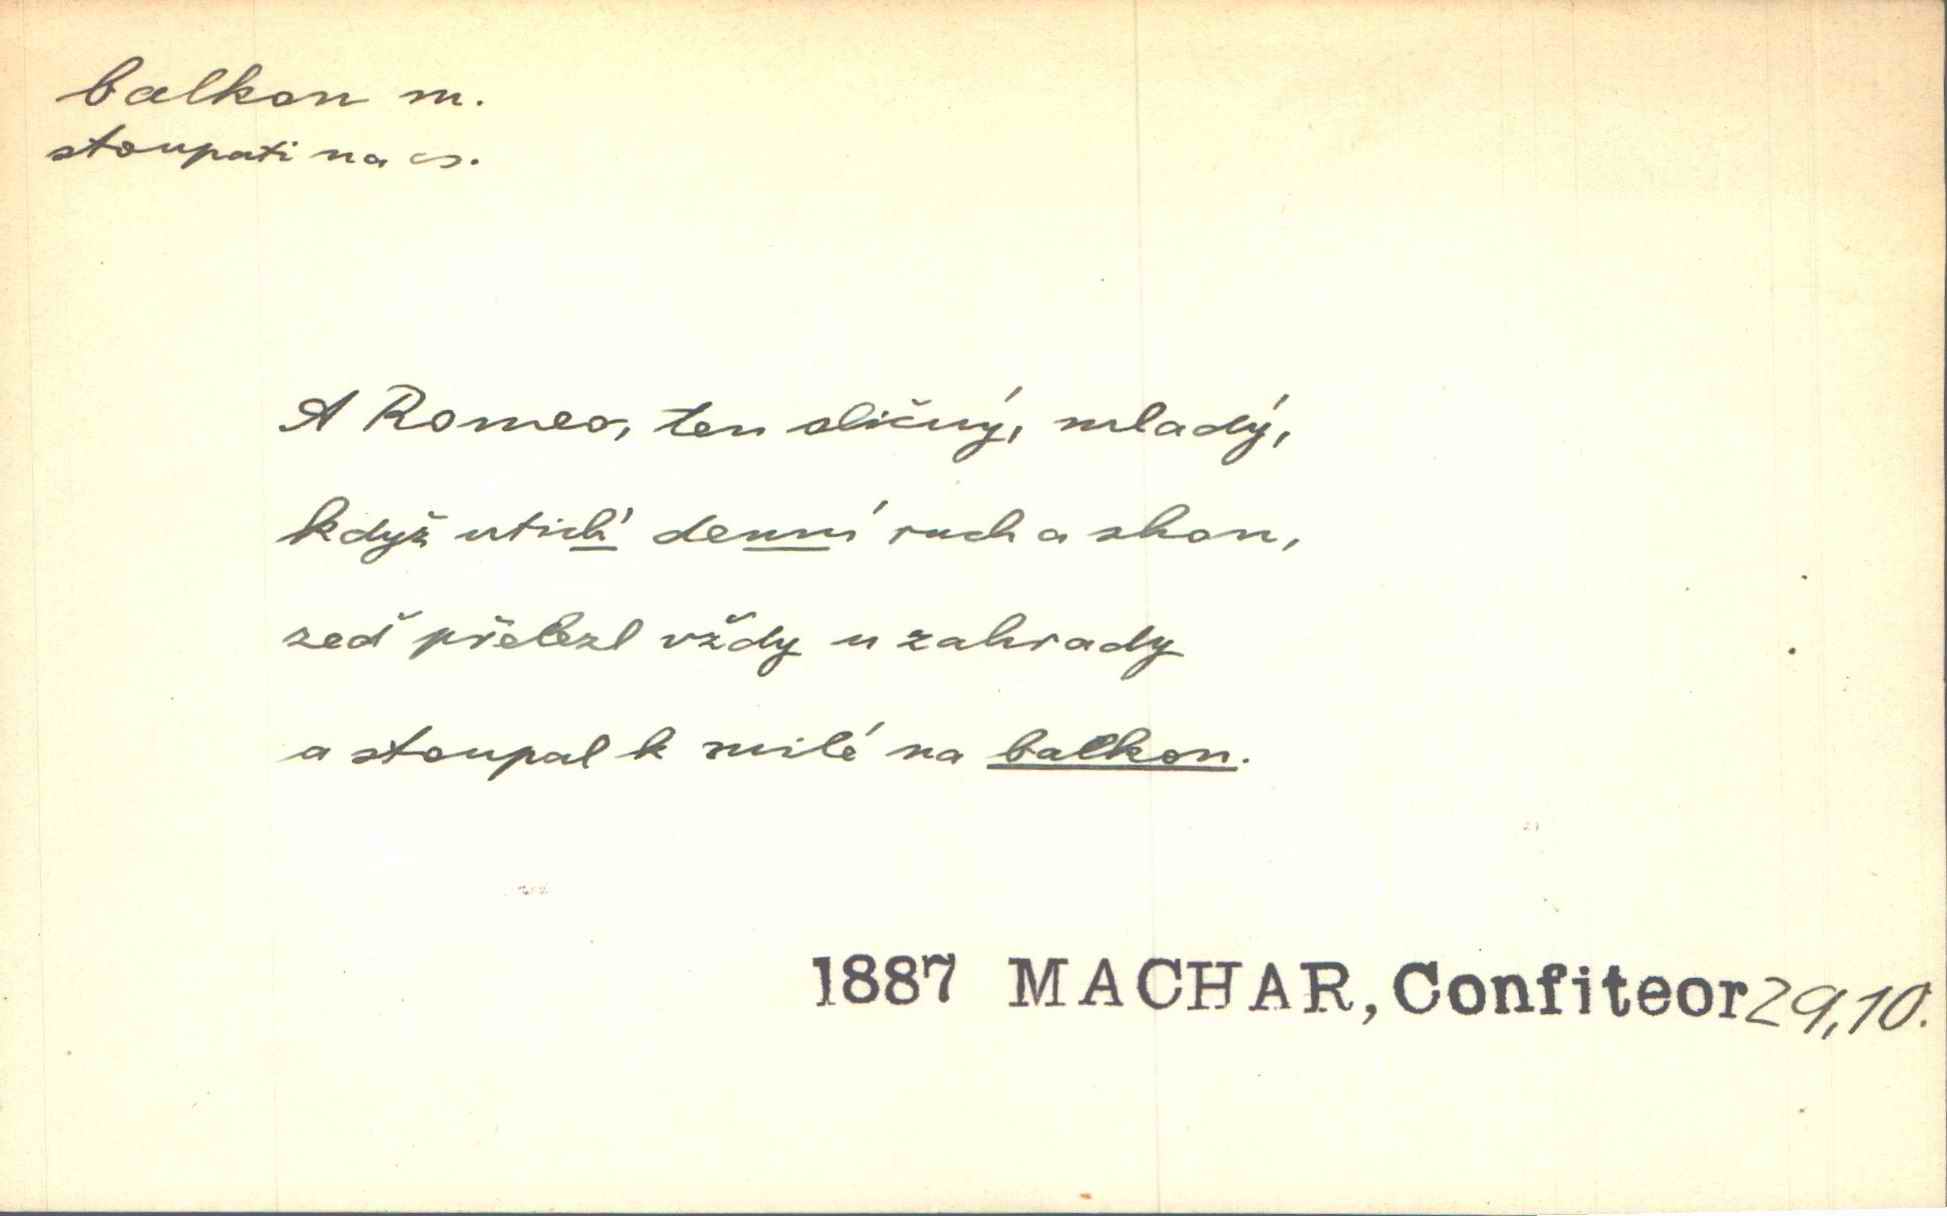 balkon m.
stoupati na ∽.
A Romeo, ten sličný, mladý,
když utichl denní ruch a shon,
zeď přelezl vždy u zahrady
a stoupal k milé na balkon.
1887 MACHAR, Confiteor 29,10.